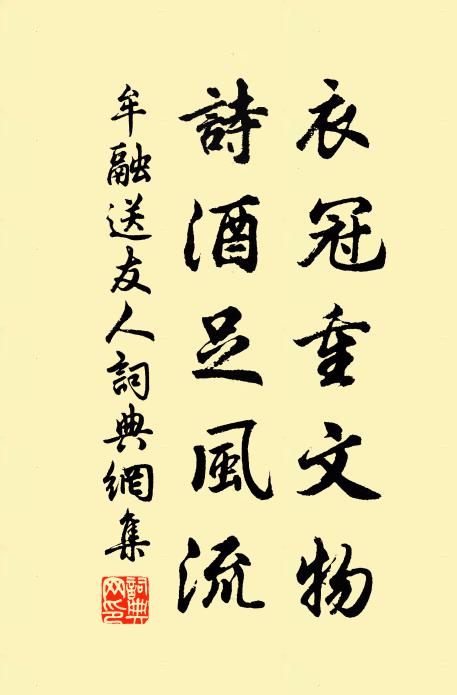 衣冠重文物
詩酒足風流
牟融送友人詞典網集
詞典網印